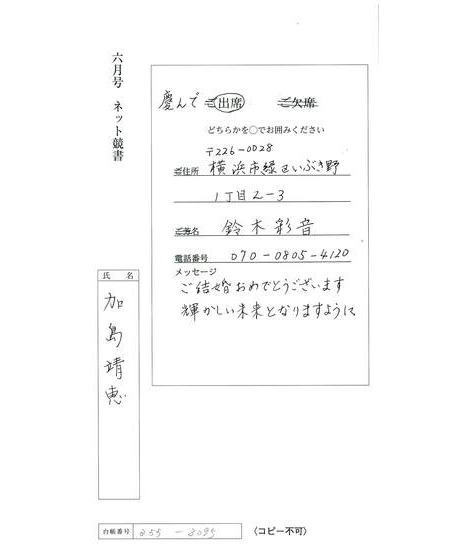 六月号 ネット競書
慶んで ご出席 ご欠席
どちらかを○でお囲みください
〒226-0028
ご住所 横浜市緑区いぶき野
1丁目2-3
ご芳名 鈴木彩音
電話番号 070-0805-4120
メッセージ
ご結婚おめでとうございます
輝かしい未来となりますように
氏名
加島靖恵
台帳番号 255-8095
〈コピー不可〉